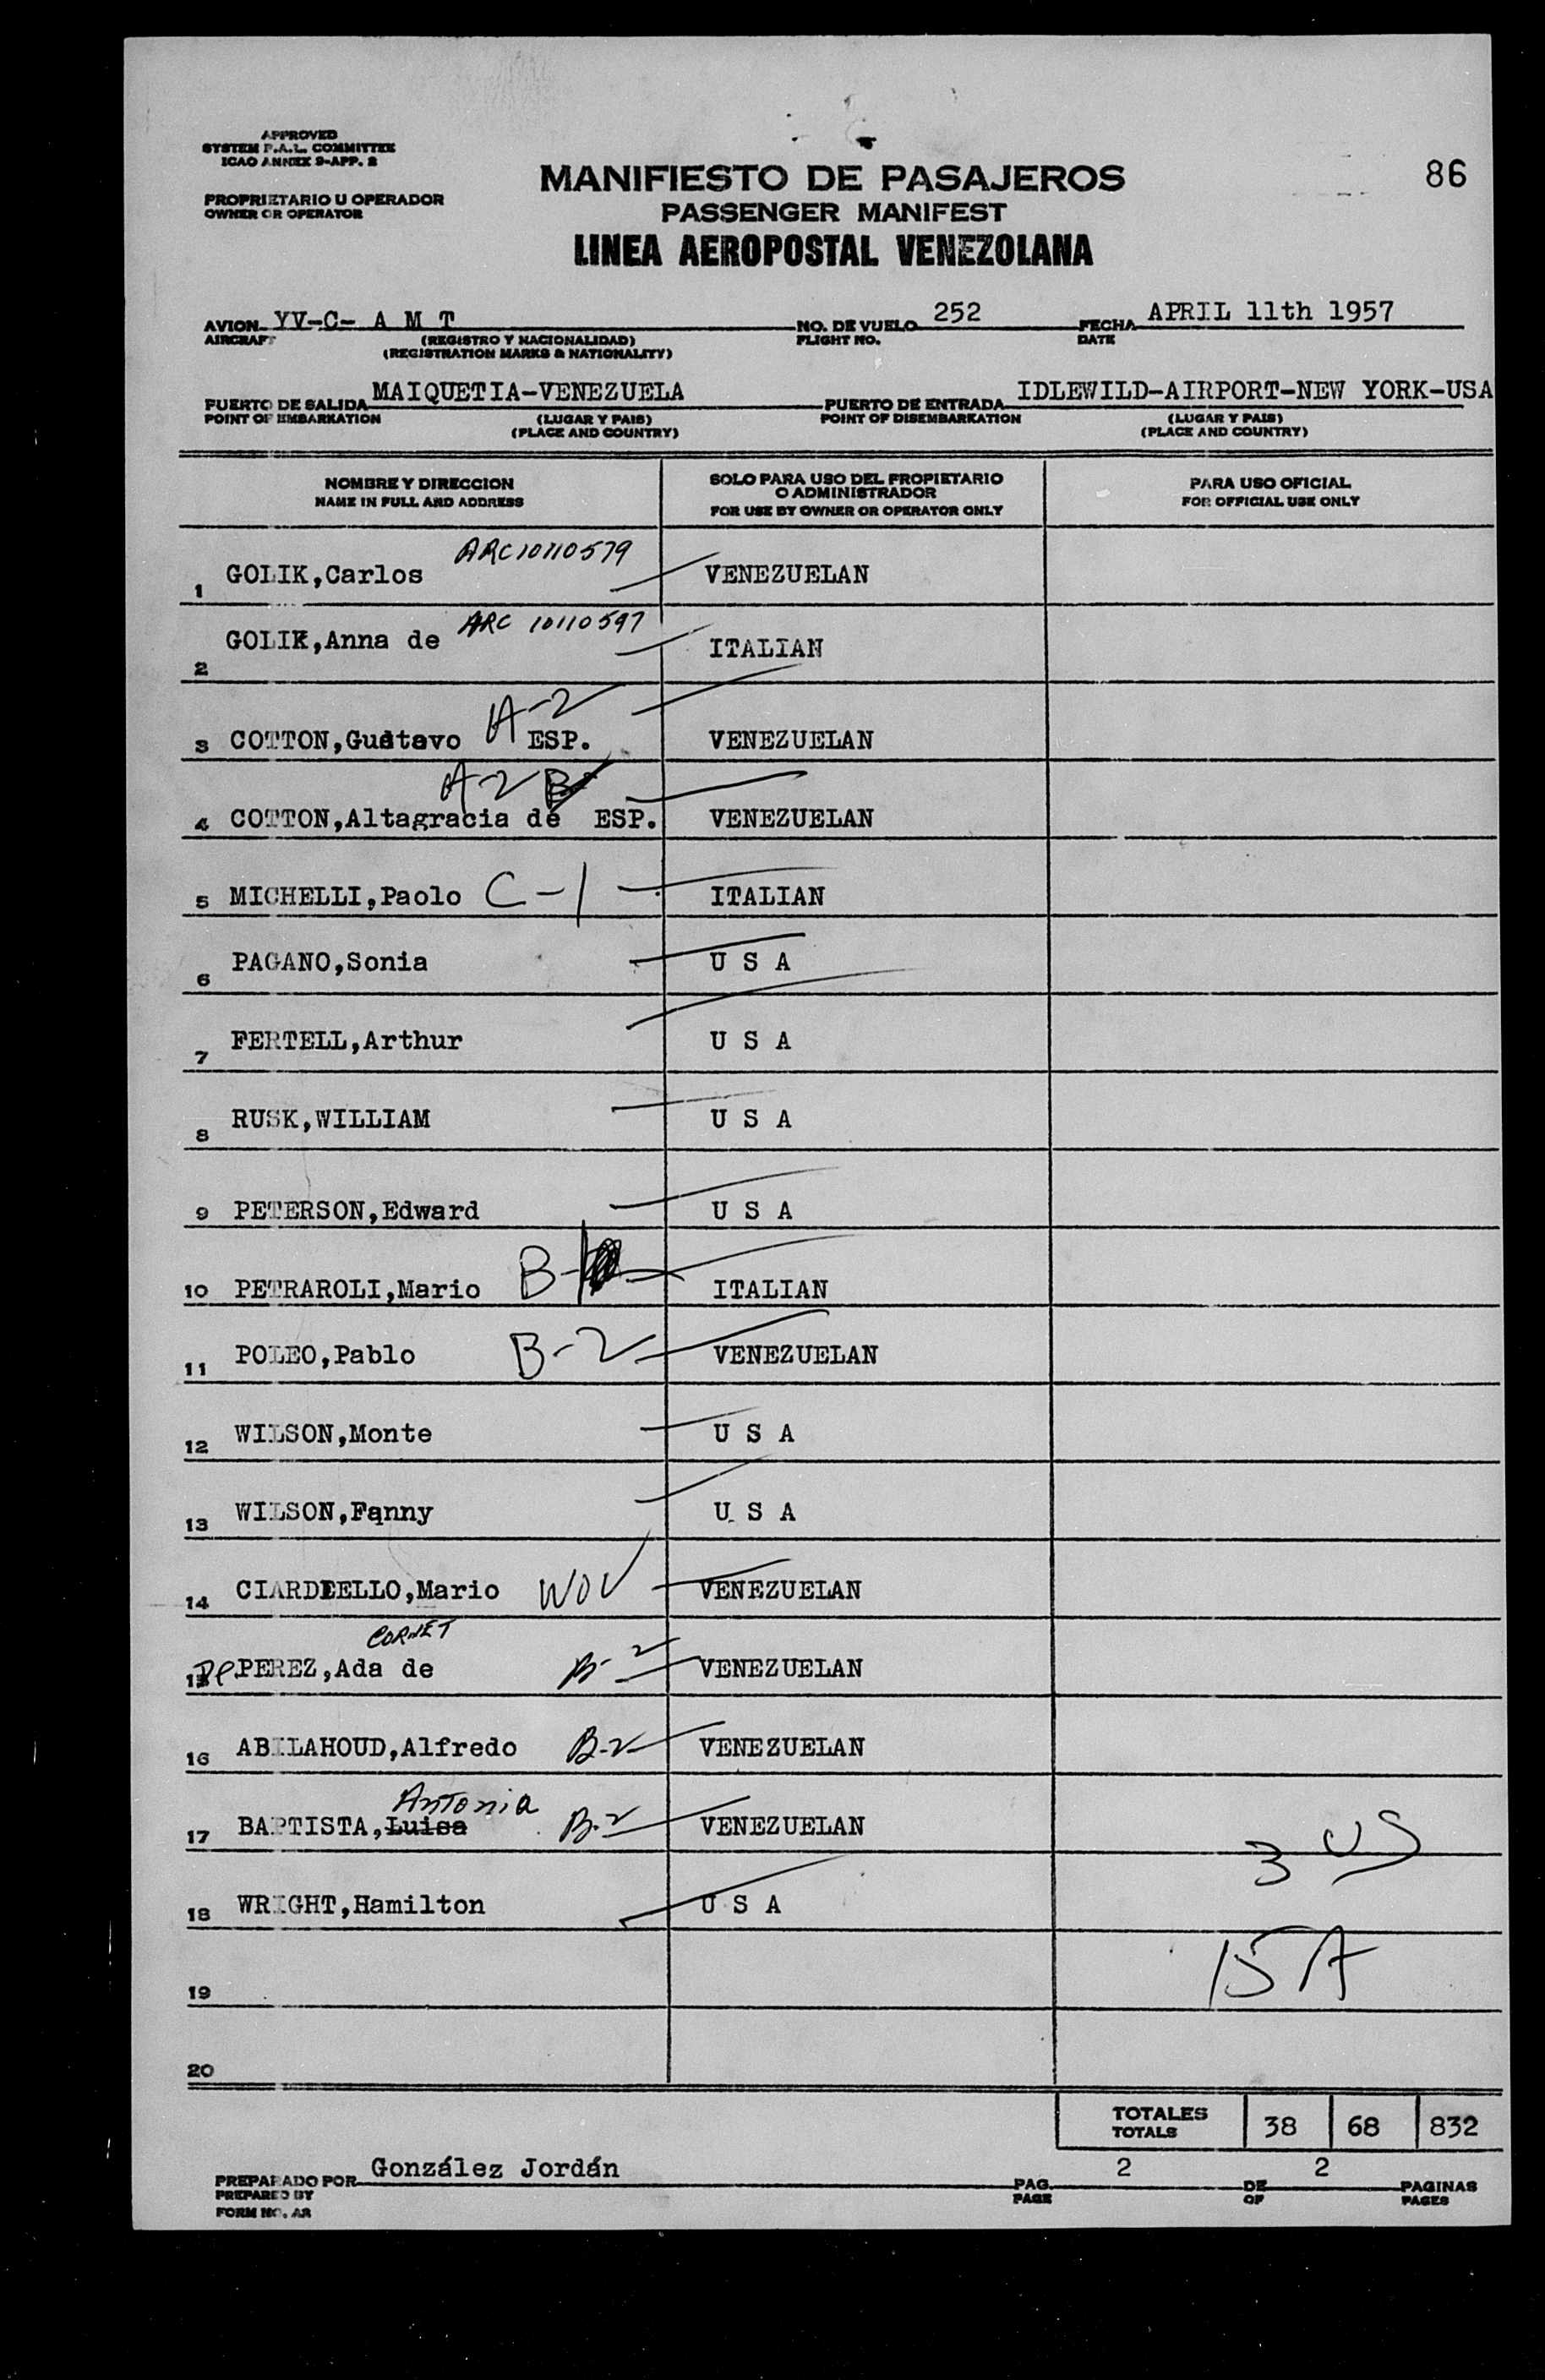 APPROVED
SYSTEM F.A.L. COMMITTEE
ICAO ANNEX 9-APP. 2
PROPRIETARIO U OPERADOR
OWNER OR OPERATOR
MANIFIESTO DE PASAJEROS
PASSENGER MANIFEST
LINEA AEROPOSTAL VENEZOLANA
86
AVION YV-C- A M T NO. DE VUELO 252 FECHA APRIL 11th 1957
AIRCRAFT (REGISTRO Y NACIONALIDAD) FLIGHT NO. DATE
(REGISTRATION MARKS & NATIONALITY)
PUERTO DE SALIDA MAIQUETIA-VENEZUELA PUERTO DE ENTRADA IDLEWILD-AIRPORT-NEW YORK-USA
POINT OF EMBARKATION (LUGAR Y PAIS) POINT OF DISEMBARKATION (LUGAR Y PAIS)
(PLACE AND COUNTRY) (PLACE AND COUNTRY)
NOMBRE Y DIRECCION
NAME IN FULL AND ADDRESS
SOLO PARA USO DEL PROPIETARIO
O ADMINISTRADOR
FOR USE BY OWNER OR OPERATOR ONLY
PARA USO OFICIAL
FOR OFFICIAL USE ONLY
ARC10110579
1 GOLIK,Carlos VENEZUELAN
ARC 10110597
2 GOLIK,Anna de ITALIAN
A-2
3 COTTON,Gustavo ESP. VENEZUELAN
A-2
4 COTTON,Altagracia de ESP. VENEZUELAN
5 MICHELLI,Paolo C-1 ITALIAN
6 PAGANO,Sonia U S A
7 FERTELL,Arthur U S A
8 RUSK,WILLIAM U S A
9 PETERSON,Edward U S A
10 PETRAROLI,Mario B- ITALIAN
11 POLEO,Pablo B-2 VENEZUELAN
12 WILSON,Monte U S A
13 WILSON,Fanny U S A
14 CIARDIELLO,Mario WOV VENEZUELAN
CORNET
15 De PEREZ,Ada de B-2 VENEZUELAN
16 ABILAHOUD,Alfredo B-2 VENEZUELAN
Antonia
17 BAPTISTA,Luisa B-2 VENEZUELAN
3 US
18 WRIGHT,Hamilton U S A
15 A
19
20
TOTALES 38 68 832
TOTALS
PREPARADO POR González Jordán PAG. 2 DE 2 PAGINAS
PREPARED BY PAGE OF PAGES
FORM NO. AR